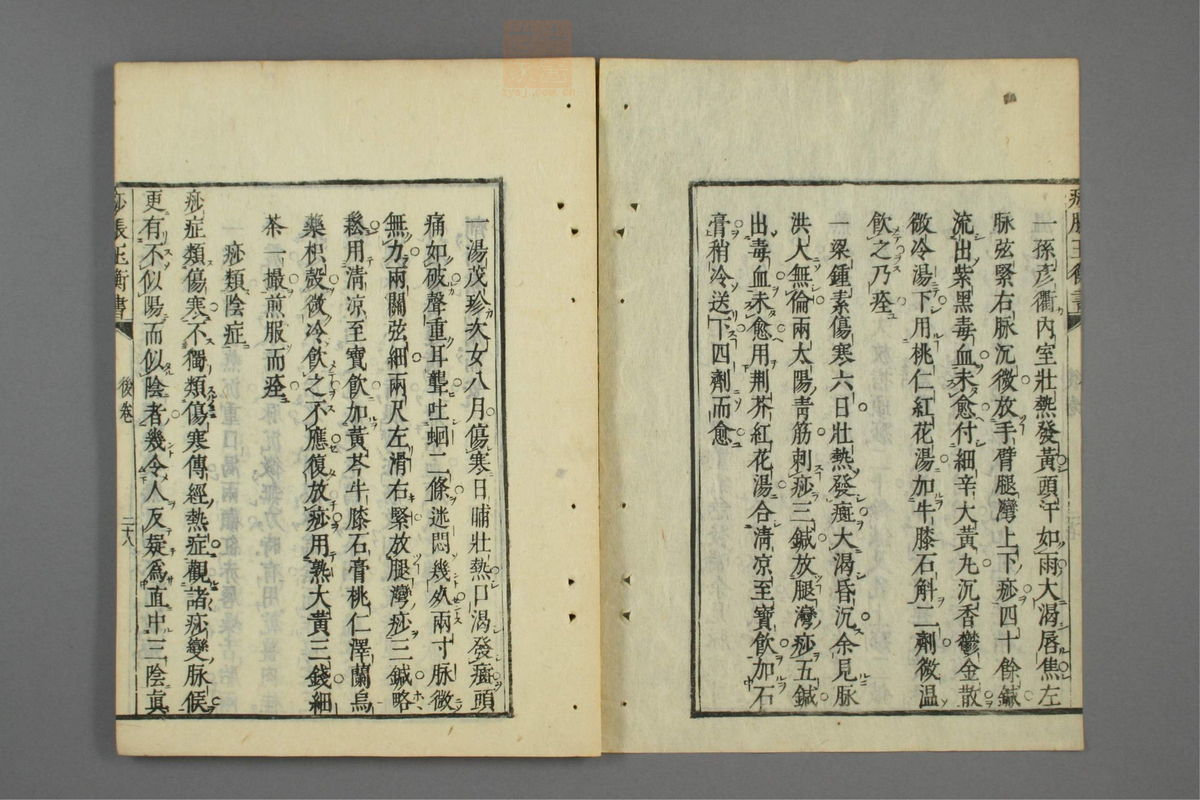 一孫彥衢內室壯熱發黃頭汗如雨大渴唇焦左
脉弦緊右脉沉微放手臂腿灣上下痧四十餘鍼
流出紫黑毒血未愈付細辛大黃丸沉香鬱金散
微冷湯下用桃仁紅花湯加牛膝石斛二劑微温
飲之乃痊
一梁鍾素傷寒六日壯熱發斑大渴昏沉余見脉
洪大無倫兩太陽青筋刺痧三鍼放腿灣痧五鍼
出毒血未愈用荆芥紅花湯合清凉至寶飲加石
膏稍冷送下四劑而愈
一湯茂珍次女八月傷寒日晡壯熱口渴發斑頭
痛如破聲重耳聾吐蛔二條迷悶幾久兩寸脉微
無力兩關弦細兩尺左滑右緊放腿灣痧三鍼略
鬆用清凉至寶飲加黃芩牛膝石膏桃仁澤蘭烏
藥枳殼微冷飲之不應復放痧用熟大黃三錢細
茶一撮煎服而痊
痧類陰症
痧症類傷寒不獨類傷寒傳經熱症觀諸痧變脉候
更有不似陽而似陰者幾令人反疑爲直中三陰眞
痧脹玉衡書
後卷
二十八